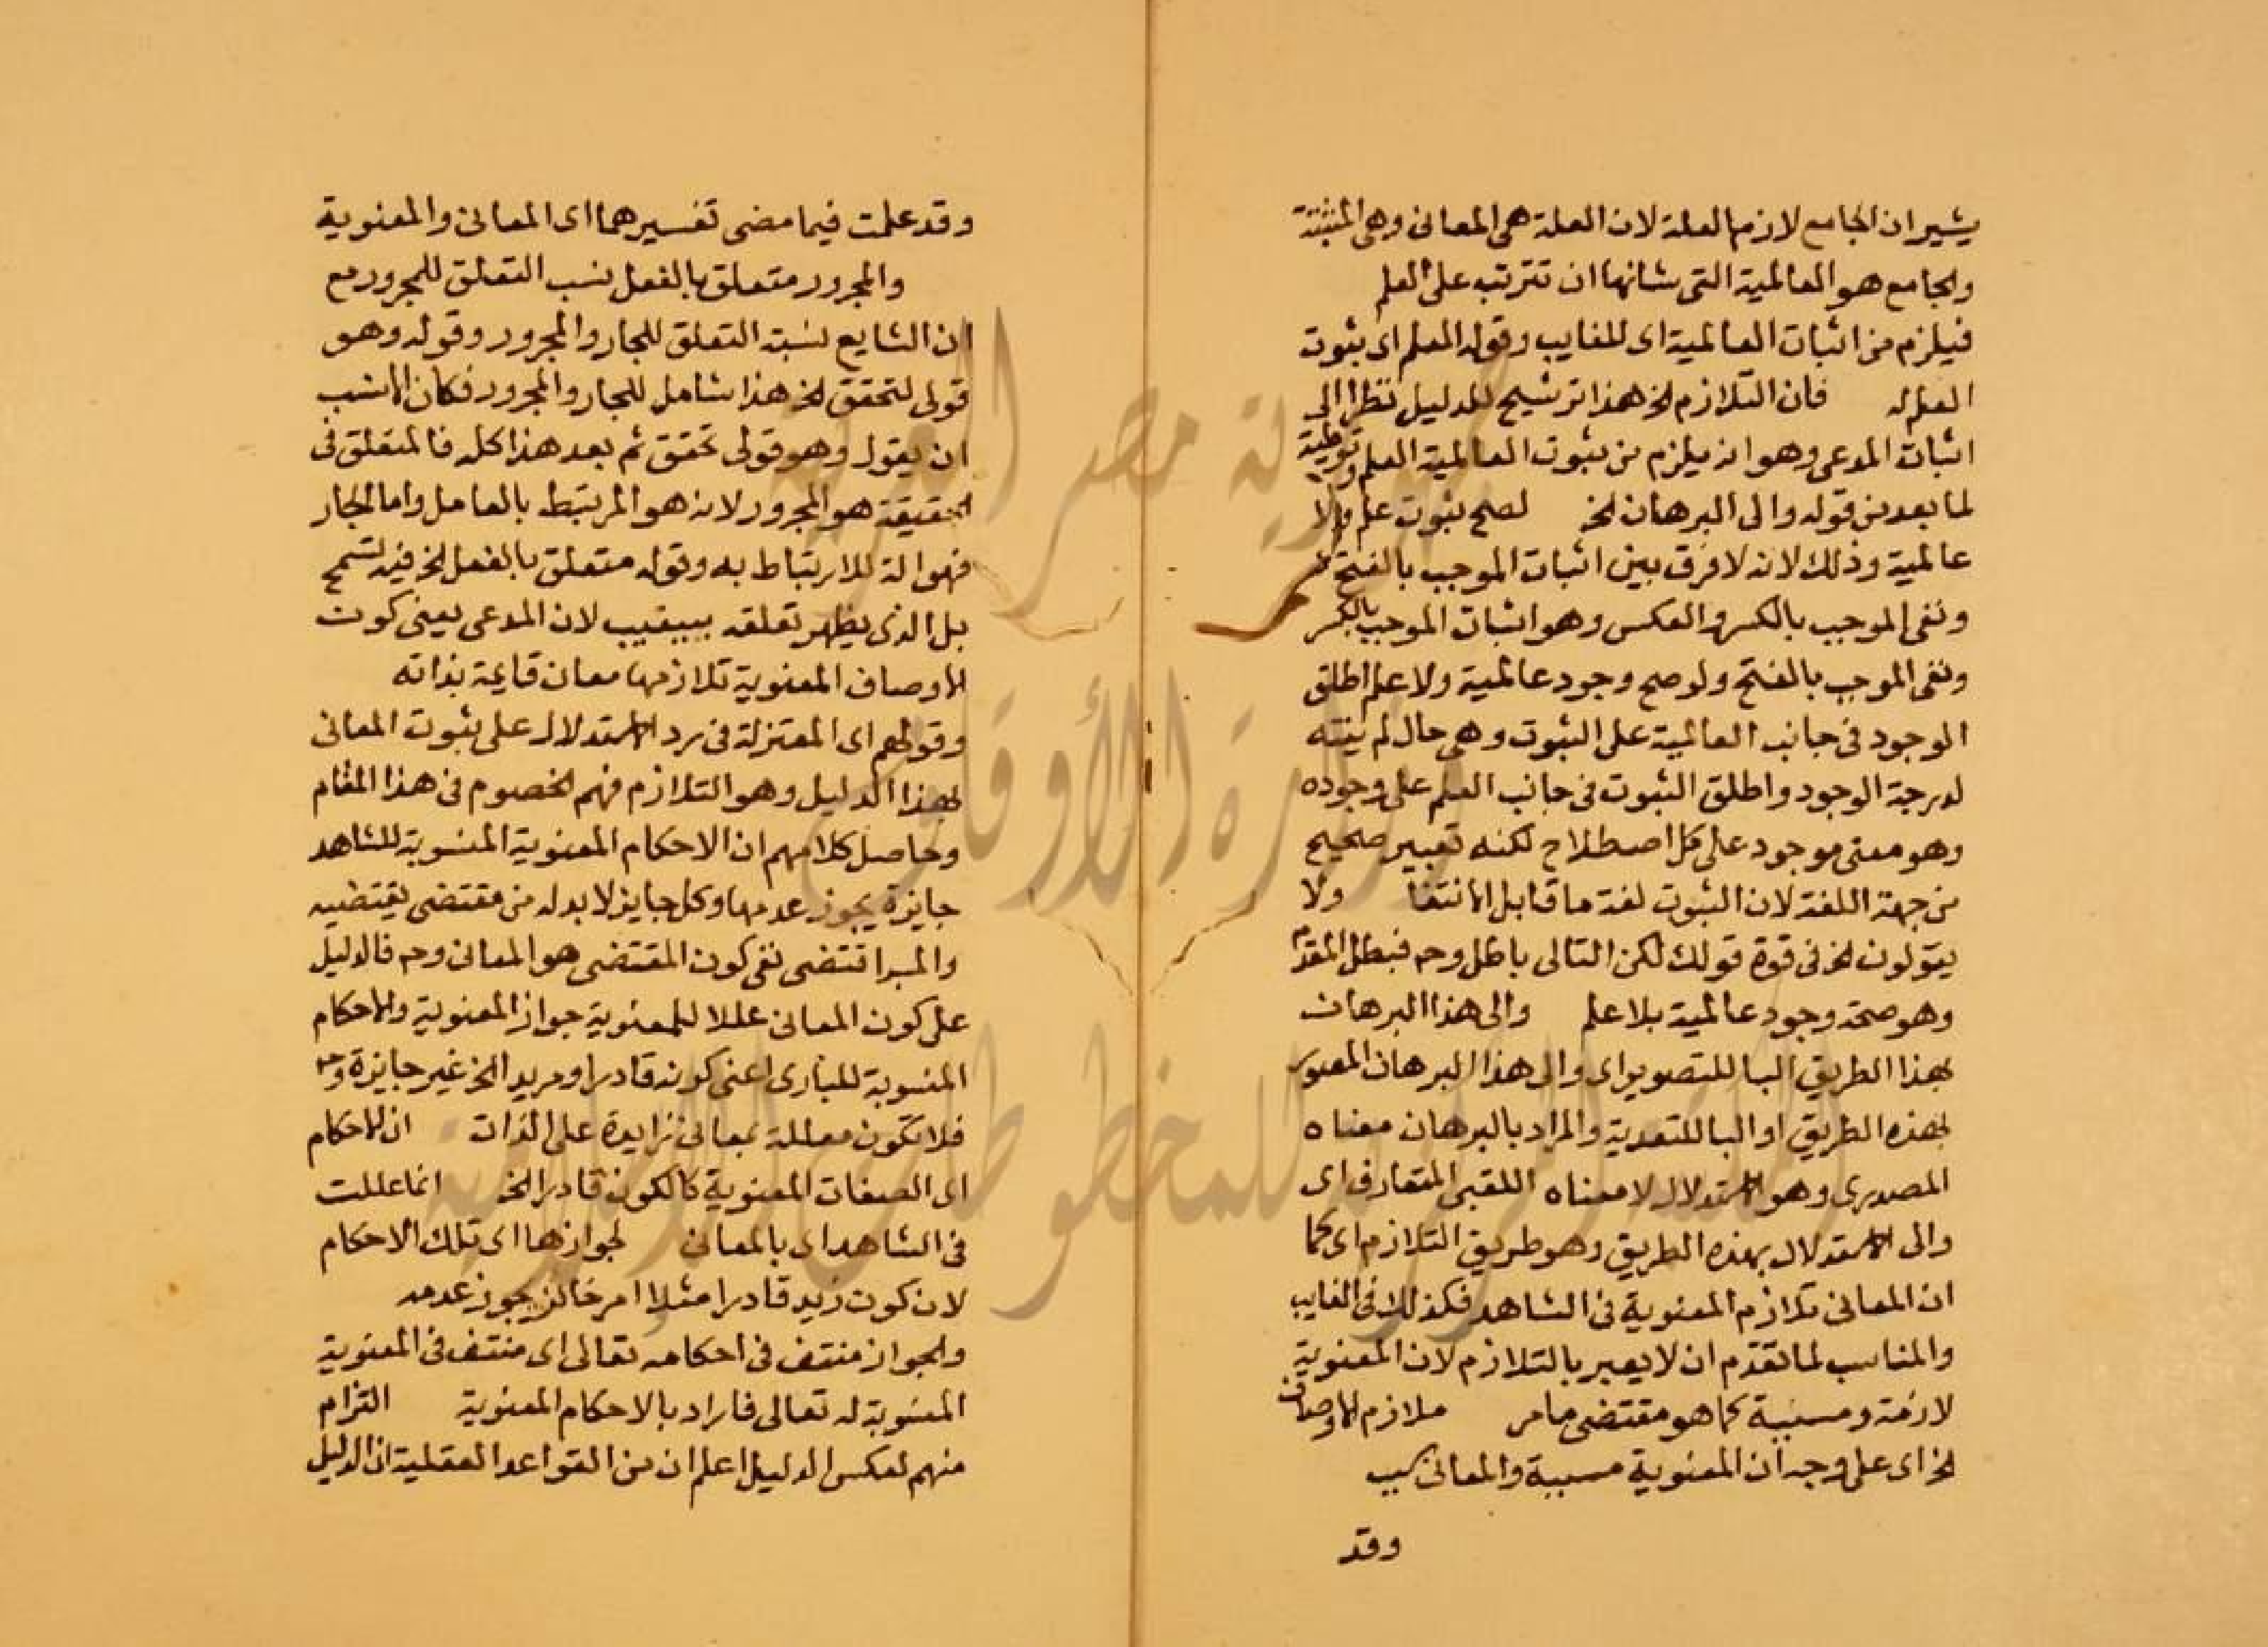 يشير ان الجامع لازم العلة لان العلة هى المعانى وهى المثبتة
والجامع هو العالمية التى شانها ان تترتب على العلم
فيلزم من اثبات العالمية اى للغايب وقوله العلم اى بثوت
العلم له فان التلازم الخ هذا ترشيح للدليل نظرا الى
اثبات المدعى وهو انه يلزم من ثبوت العالمية العلم وتوطية
لما بعد من قوله والى البرهان الخ لصح ثبوت علم ولا
عالمية وذلك لانه لا فرق بين اثبات الموجب بالفتح
ونفى الموجب بالكسر والعكس وهو اثبات الموجب بالكسر
ونفى الموجب بالفتح ولو صح وجود عالمية ولا علم اطلق
الوجود فى جانب العالمية على الثبوت وهى حال لم ينته
لدرجة الوجود واطلق الثبوت فى جانب العلم على وجوده
وهو معنى موجود على كل اصطلاح لكنه تعبير صحيح
من جهة اللغة لان الثبوت لغة ما قابل الانتفا ولا
يقولون الخ فى قوة قولك لكن التالى باطل وح فبطل المقدم
وهو صحة وجود عالمية بلا علم والى هذا البرهان
بهذا الطريق البا للتصوير اى والى هذا البرهان المصور
بهذه الطريق او البا للتعدية والمراد بالبرهان معناه
المصدرى وهو الاستدلال لا معناه اللقبى المتعارف اى
والى الاستدلال بهذه الطريق وهو طريق التلازم اى كما
ان المعانى تلازم المعنوية فى الشاهد فكذلك فى الغايب
والمناسب لما تقدم ان لا يعبر بالتلازم لان المعنوية
لازمة ومسببة كما هو مقتضى ما مر ملازم الاوصاف
الخ اى على وجه ان المعنوية مسببة والمعانى سبب
وقد
وقد علمت فيما مضى تفسيرهما اى المعانى والمعنوية
والمجرور متعلق بالفعل نسب التعلق للمجرور مع
ان الشايع نسبة التعلق للجار والمجرور وقوله وهو
قولى لتحقق الخ هذا شامل للجار والمجرور فكان الانسب
ان يقول وهو قولى تحقق ثم بعد هذا كله فالمتعلق فى
الحقيقة هو المجرور لانه هو المرتبط بالعامل واما الجار
فهو الة للارتباط به وقوله متعلق بالفعل الخ فيه تسمح
بل الذى يظهر تعلقه لان المدعى يعنى كون
الاوصاف المعنوية تلازمها معان قايمة بذاته
وقولهم اى المعتزلة فى رد الاستدلال على ثبوت المعانى
بهذا الدليل وهو التلازم فهم الخصوم فى هذا المقام
وحاصل كلامهم ان الاحكام المعنوية المنسوبة للشاهد
جايزة يجوز عدمها وكل جايز لابد له من مقتضى يقتضيه
والسبر اقتضى نفى كون المقتضى هو المعانى وح فالدليل
على كون المعانى عللا للمعنوية جواز المعنوية والاحكام
المنسوبة للبارى اعنى كونه قادرا ومريدا الخ غير جايزة وح
فلا تكون معللة بمعانى زايدة على الذات ان الاحكام
اى الصفات المعنوية كالكون قادرا الخ انما عللت
فى الشاهد اى بالمعانى لجوازها اى تلك الاحكام
لان كون زيد قادرا مثلا امر جايز يجوز عدمه
والجواز منتف فى احكامه تعالى اى منتف فى المعنوية
المنسوبة له تعالى فاراد بالاحكام المعنوية التزام
منهم لعكس الدليل اعلم ان من القواعد العقلية ان الدليل